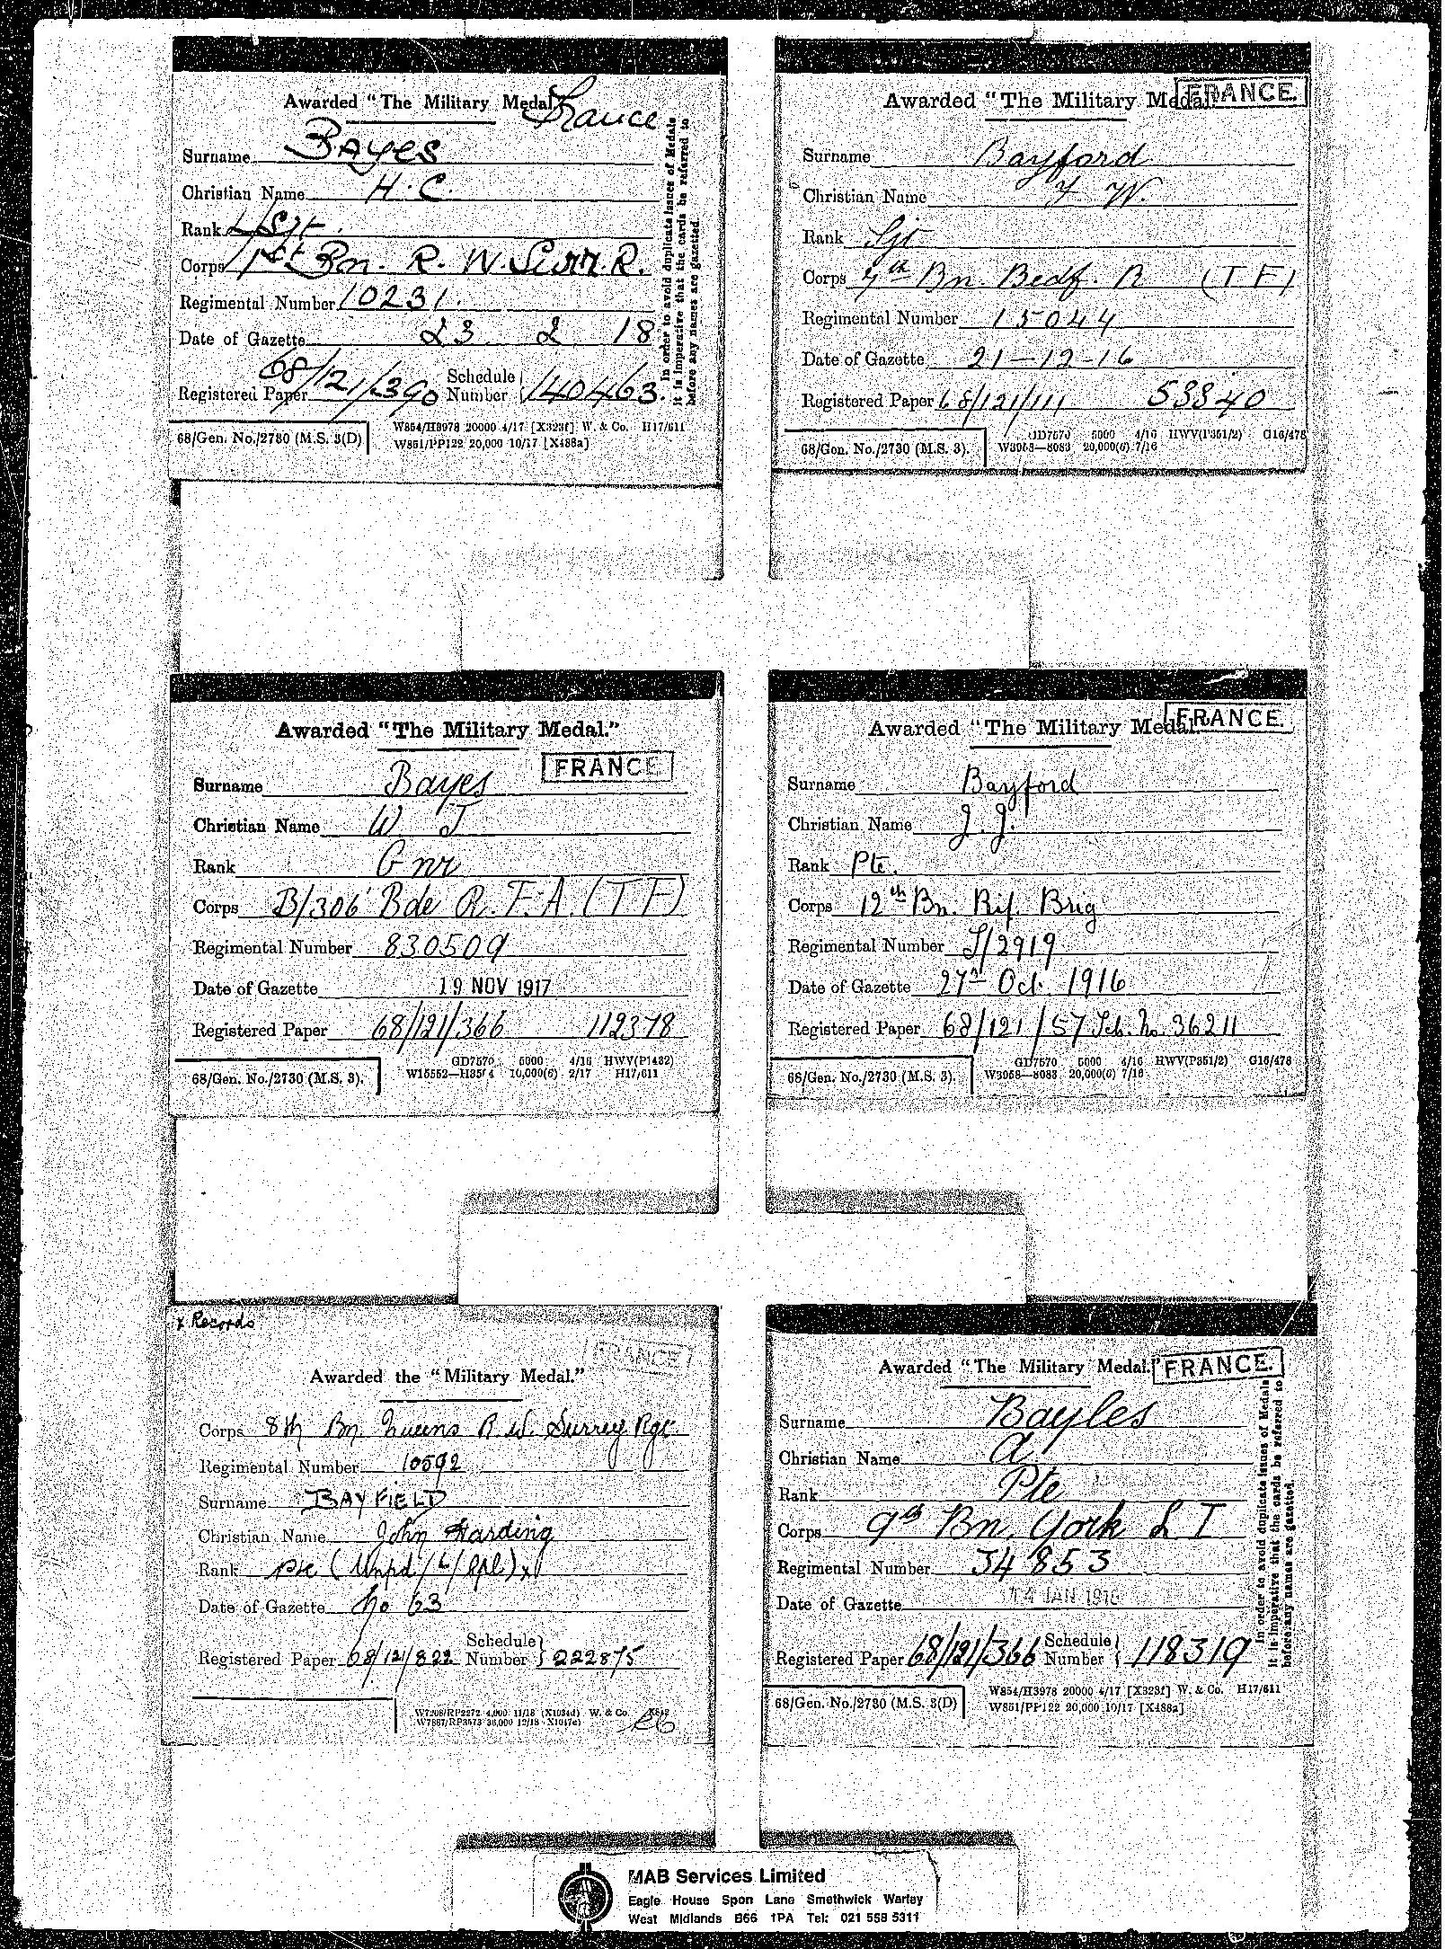 Awarded "The Military Medal
France
Surname Bayes
Christian Name H. C.
Rank L/Sgt.
Corps 1st Bn. R. W. Surr. R.
Regimental Number 10231.
Date of Gazette 23 2 18
Registered Paper 68/121/390 Schedule Number 140463.
In order to avoid duplicate issues of Medals
it is imperative that the cards be referred to
before any names are gazetted.
68/Gen. No./2730 (M.S. 3(D)
W854/H3978 20000 4/17 [X323f] W. & Co. H17/611
W851/PP122 20,000 10/17 [X488a]
Awarded "The Military Medal
FRANCE.
Surname Bayford
Christian Name W.
Rank Sgt
Corps 7th Bn. Bedf. R (T F)
Regimental Number 15044
Date of Gazette 21-12-16
Registered Paper 68/121/111 53840
68/Gen. No./2730 (M.S. 3).
GD7570 5000 4/16 HWV(P351/2) G16/478
W3068—8083 20,000(6) 7/16
Awarded "The Military Medal."
FRANCE
Surname Bayes
Christian Name W J
Rank Gnr
Corps B/306 Bde R. F. A. (T F)
Regimental Number 830509
Date of Gazette 19 NOV 1917
Registered Paper 68/121/366 112378
68/Gen. No./2730 (M.S. 3).
GD7570 5000 4/16 HWV(P1432)
10,000(6) 2/17 H17/611
Awarded "The Military Medal
FRANCE.
Surname Bayford
Christian Name J. J.
Rank Pte.
Corps 12th Bn. Rif. Brig
Regimental Number S/2919
Date of Gazette 27th Oct. 1916
Registered Paper 68/121/57 Sch. No. 36211
68/Gen. No./2730 (M.S. 3).
GD7570 5000 4/16 HWV(P351/2) G16/478
W3068—8083 20,000(6) 7/16
x Records
FRANCE
Awarded the "Military Medal."
Corps 8th Bn Queens R. W. Surrey Rgt
Regimental Number 10592
Surname BAYFIELD
Christian Name John Harding
Rank Pte (Unpd/L/Cpl) x
Date of Gazette No 63
Registered Paper 68/121/822 Schedule Number 222875
W7208/RP2272 4,000 11/18 (X1034d) W. & Co.
W7887/RP3573 36,000 12/18
Awarded "The Military Medal."
FRANCE.
Surname Bayles
Christian Name A
Rank Pte
Corps 9th Bn. York L I
Regimental Number 34853
Date of Gazette 14 JAN 1918
Registered Paper 68/121/366 Schedule Number 118319
In order to avoid duplicate issues of Medals
it is imperative that the cards be referred to
before any names are gazetted.
68/Gen. No./2730 (M.S. 3(D)
W854/H3978 20000 4/17 [X323f] W. & Co. H17/611
W851/PP122 20,000 10/17 [X488a]
MAB Services Limited
Eagle House Spon Lane Smethwick Warley
West Midlands B66 1PA Tel: 021 558 5311